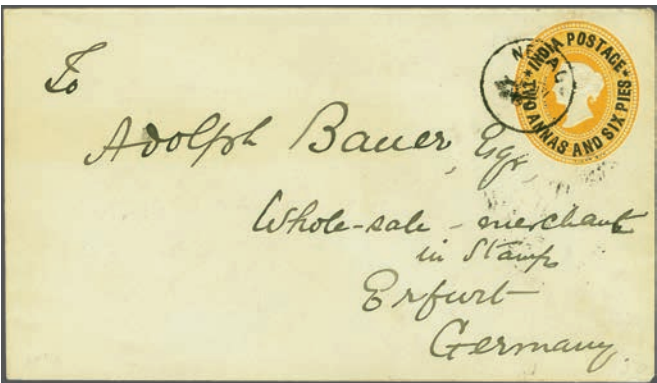 To
Adolph Bauer, Esqr,
Whole-sale - merchant
in Stamps
Erfurt
Germany.
INDIA POSTAGE
TWO ANNAS AND SIX PIES